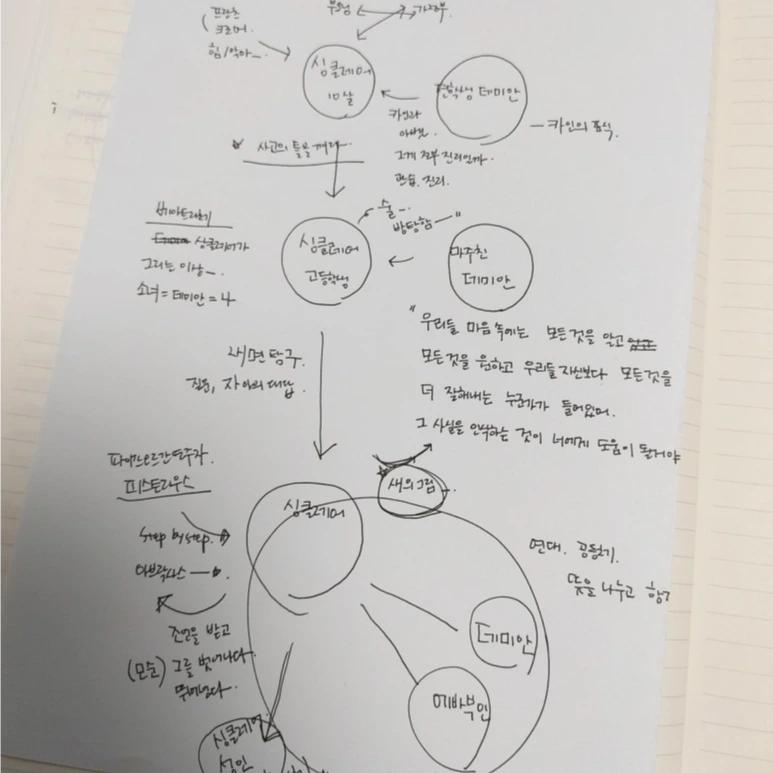 프란츠
크로머.
힘/악마
싱클레어
10살
전학생 데미안
— 카인의 표식.
카인과
아벨
그게 전부 진리인가.
관습. 진리.
사고의 틀을 깨라
베아트리체
싱클레어가
그리는 이상
소녀 = 데미안 = 나
싱클레어
고등학생
술
방탕함 — "
마주친
데미안
" 우리들 마음 속에는 모든 것을 알고
모든 것을 원하고 우리들 자신보다 모든 것을
더 잘해내는 누군가가 들어있어.
그 사실을 인식하는 것이 너에게 도움이 될거야
내면 탐구.
질문, 자아의 대답.
파이프오르간 연주자.
피스토리우스
Step by step.
아브락사스
조언을 받고
(모순) 그를 벗어나다.
뛰어넘다.
싱클레어
새의 그림
연대. 공동체.
뜻을 나누고
데미안
에바부인
싱클레어
성인